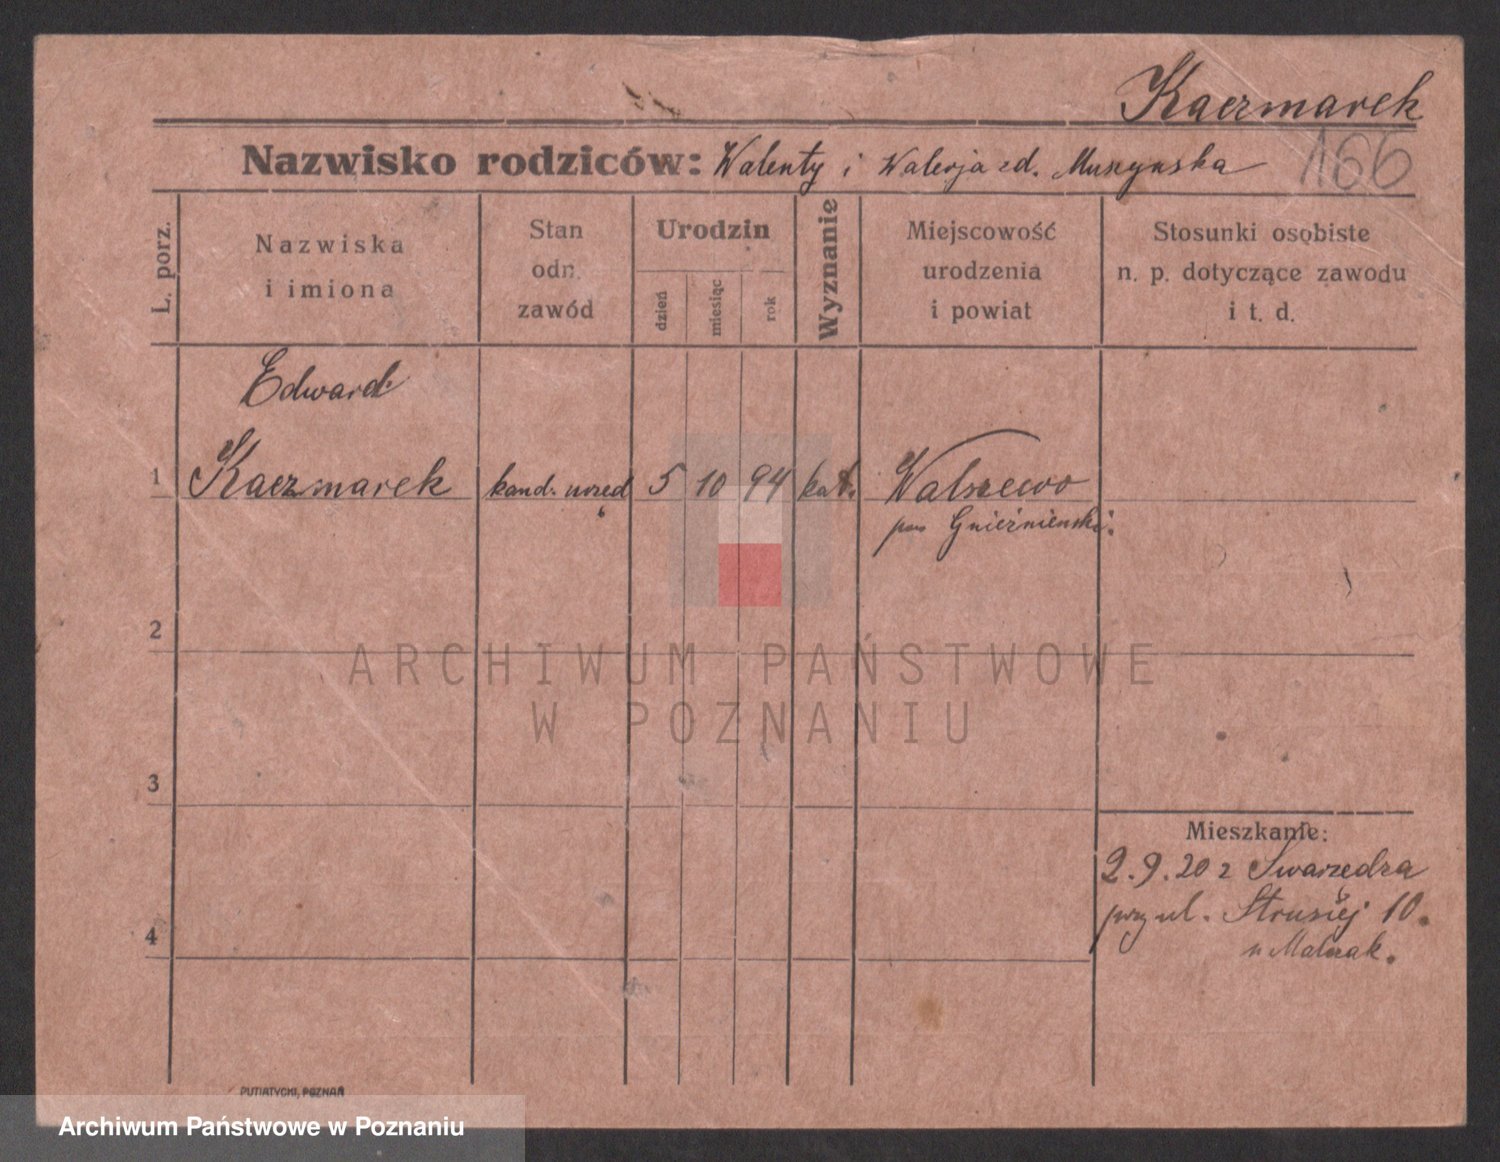 Kaczmarek
166
Nazwisko rodziców: Walenty i Walerja zd. Muszynska
L. porz.
Nazwiska
i imiona
Stan
odn.
zawód
Urodzin
dzień
miesiąc
rok
Wyznanie
Miejscowość
urodzenia
i powiat
Stosunki osobiste
n. p. dotyczące zawodu
i t. d.
Edward
1 Kaczmarek kand. urzęd 5 10 94 kat. Walszewo
pow Gnieźnienski.
2
ARCHIWUM PAŃSTWOWE
W POZNANIU
3
Mieszkanie:
2.9.20 z Swarzędza
przy ul. Strusiej 10.
4
u Malczak.
PUTIATYCKI, POZNAŃ
Archiwum Państwowe w Poznaniu